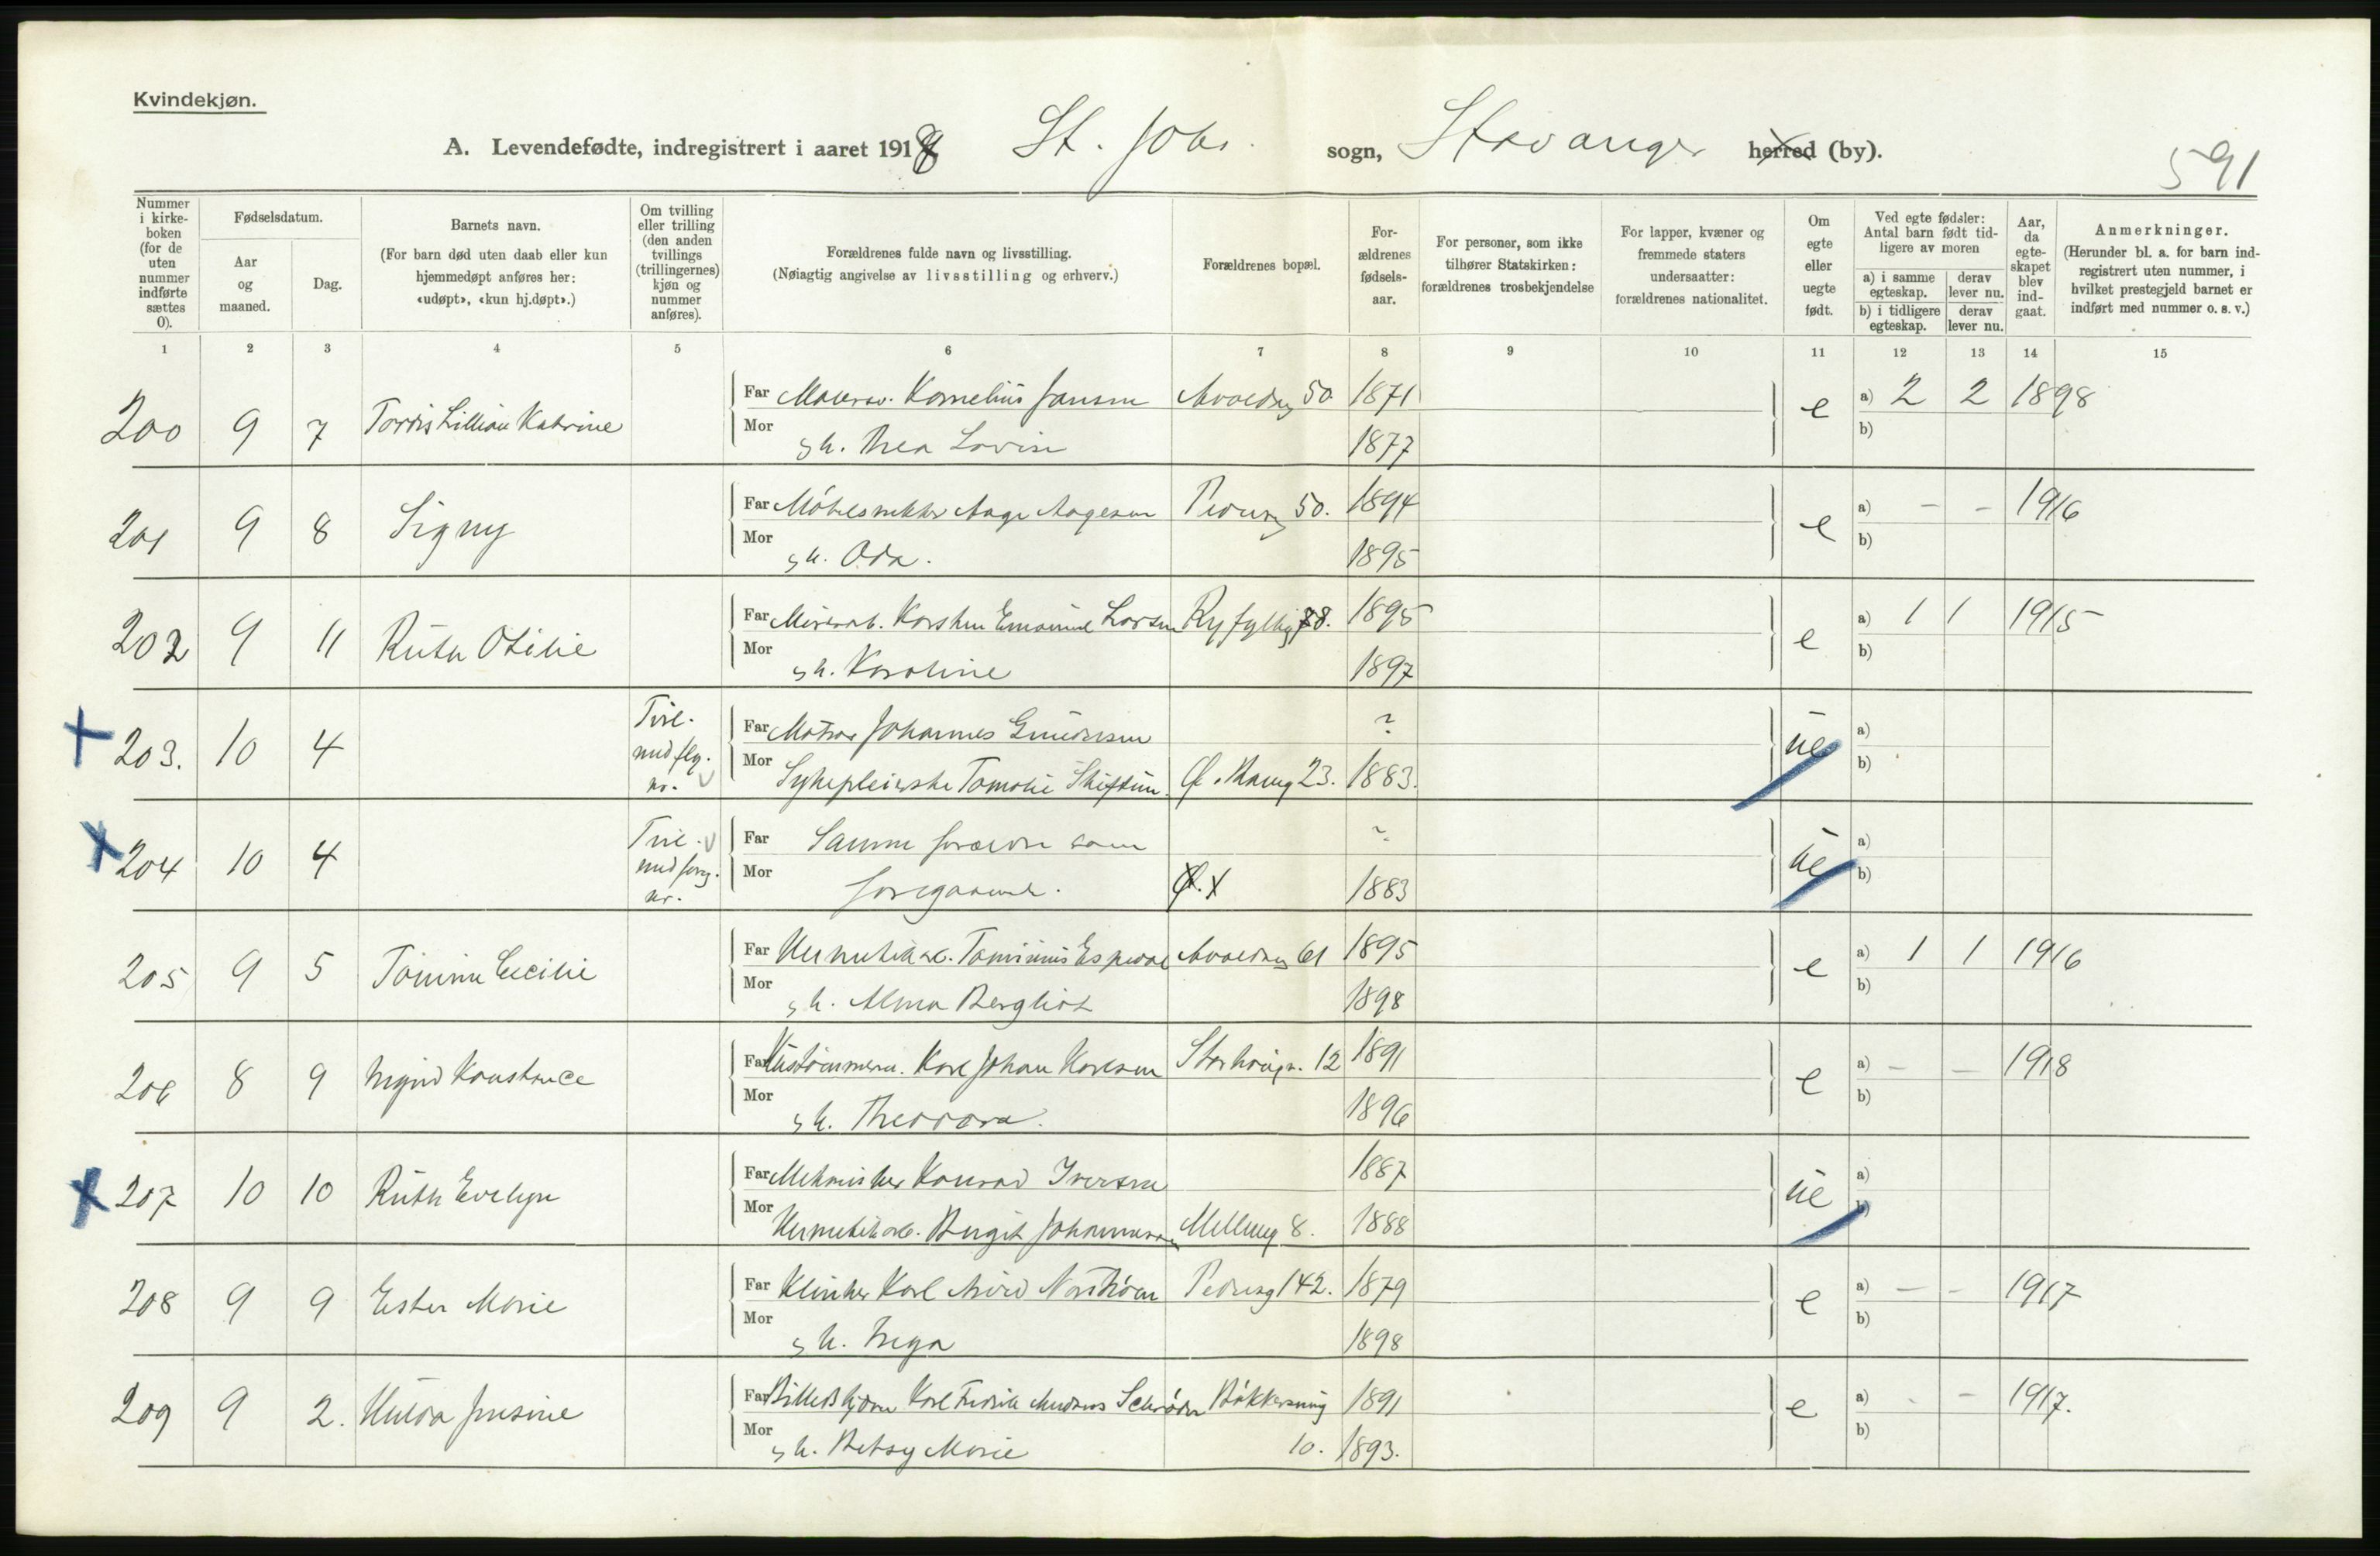 Kvindekjøn.
A. Levendefødte, indregistrert i aaret 1918 St. Johs. sogn, Stavanger herred (by).
591
Nummer i kirke-boken (for de uten nummer indførte sættes 0).
Fødselsdatum.
Aar og maaned.
Dag.
Barnets navn.
(For barn død uten daab eller kun hjemmedøpt anføres her: «udøpt», «kun hj.døpt».)
Om tvilling eller trilling (den anden tvillings (trillingernes) kjøn og nummer anføres).
Forældrenes fulde navn og livsstilling.
(Nøiagtig angivelse av livsstilling og erhverv.)
Forældrenes bopæl.
For-ældrenes fødsels-aar.
For personer, som ikke tilhører Statskirken: forældrenes trosbekjendelse
For lapper, kvæner og fremmede staters undersaatter: forældrenes nationalitet.
Om egte eller uegte født.
Ved egte fødsler: Antal barn født tid-ligere av moren
a) i samme egteskap. derav lever nu.
b) i tidligere egteskap. derav lever nu.
Aar, da egte-skapet blev ind-gaat.
Anmerkninger.
(Herunder bl. a. for barn ind-registrert uten nummer, i hvilket prestegjeld barnet er indført med nummer o. s. v.)
1 2 3 4 5 6 7 8 9 10 11 12 13 14 15
200 9 7 Lillian Katrine Far Kornelius Jansen 50 1871 e a) 2 2 1898
Mor h. Thea Lovise 1877 b)
201 9 8 Signy Far Aage Aagesen Pedersg 50. 1894 e a) - - 1916
Mor h. Oda. 1895 b)
202 9 11 Ruth Otilie Far Karsten Emanuel Larsen Ryfylkeg 1895 e a) 1 1 1915
Mor h. Karoline 1897 b)
203. 10 4 Tvil. med flg. nr. Far Matros Johannes Gundersen ? ue a)
Mor Sykepleierske 23. 1883. b)
204 10 4 Tvil. med forg. nr. Far Samme foreldre som ? ue a)
Mor foregaaende. 1883 b)
205 9 5 Cecilie Far Espedal 61 1895 e a) 1 1 1916
Mor h. Alma Bergliot 1898 b)
206 8 9 Ingrid Konstance Far Hustømmerm. Karl Johan Karlsen Storhaugv. 12 1891 e a) - - 1918
Mor h. Theodora. 1896 b)
207 10 10 Ruth Evelyn Far Mekaniker Konrad Iversen 1887 ue a)
Mor Hermetikarb. Birgit Johannesen 8. 1888 b)
208 9 9 Ester Marie Far Klinker Karl Nordstrøm Pedersg 142. 1879 e a) - - 1917
Mor h. Inga 1898 b)
209 9 2. Hulda Far Karl Fredrik Andreas Schrøder Bakkersmug 1891 e a) - - 1917.
Mor h. Betsy Marie 10. 1893. b)